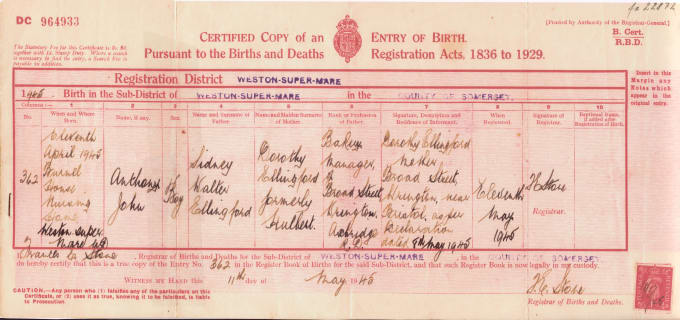 DC 964933
CERTIFIED COPY of an ENTRY OF BIRTH.
Pursuant to the Births and Deaths Registration Acts, 1836 to 1929.
[Printed by Authority of the Registrar-General.]
B. Cert.
R.B.D.
The Statutory Fee for this Certificate is
together with Stamp Duty. Where a search is necessary to find the entry, a Search Fee is payable in addition.
Registration District WESTON-SUPER-MARE
1945 Birth in the Sub-District of WESTON-SUPER-MARE in the COUNTY OF SOMERSET.
Insert in this Margin any Notes which appear in the original entry.
Columns:— 1 2 3 4 5 6 7 8 9 10
No. When and Where Born. Name, if any. Sex. Name and Surname of Father. Name and Maiden Surname of Mother. Rank or Profession of Father. Signature, Description and Residence of Informant. When Registered. Signature of Registrar. Baptismal Name, if added after Registration of Birth.
362
Eleventh
April 1945
House
Nursing
Home
Weston super
Mare UD
Anthony
John
Boy
Sidney
Walter
Ellingford
Dorothy
Ellingford
formerly
Hulbert
Bakery
Manager,
of
Broad Street,
Wrington,
Axbridge
R.D.
Dorothy Ellingford
Mother
Broad Street,
Wrington, near
Bristol, as per
Declaration
dated 8th May 1945
Eleventh
May
1945
Registrar.
I, Stone, Registrar of Births and Deaths for the Sub-District of WESTON-SUPER-MARE in the COUNTY OF SOMERSET.
do hereby certify that this is a true copy of the Entry No. 362 in the Register Book of Births for the said Sub-District, and that such Register Book is now legally in my custody.
WITNESS MY HAND this 11th day of May 1945
CAUTION.—Any person who (1) falsifies any of the particulars on this Certificate, or (2) uses it as true, knowing it to be falsified, is liable to Prosecution.
Registrar of Births and Deaths.